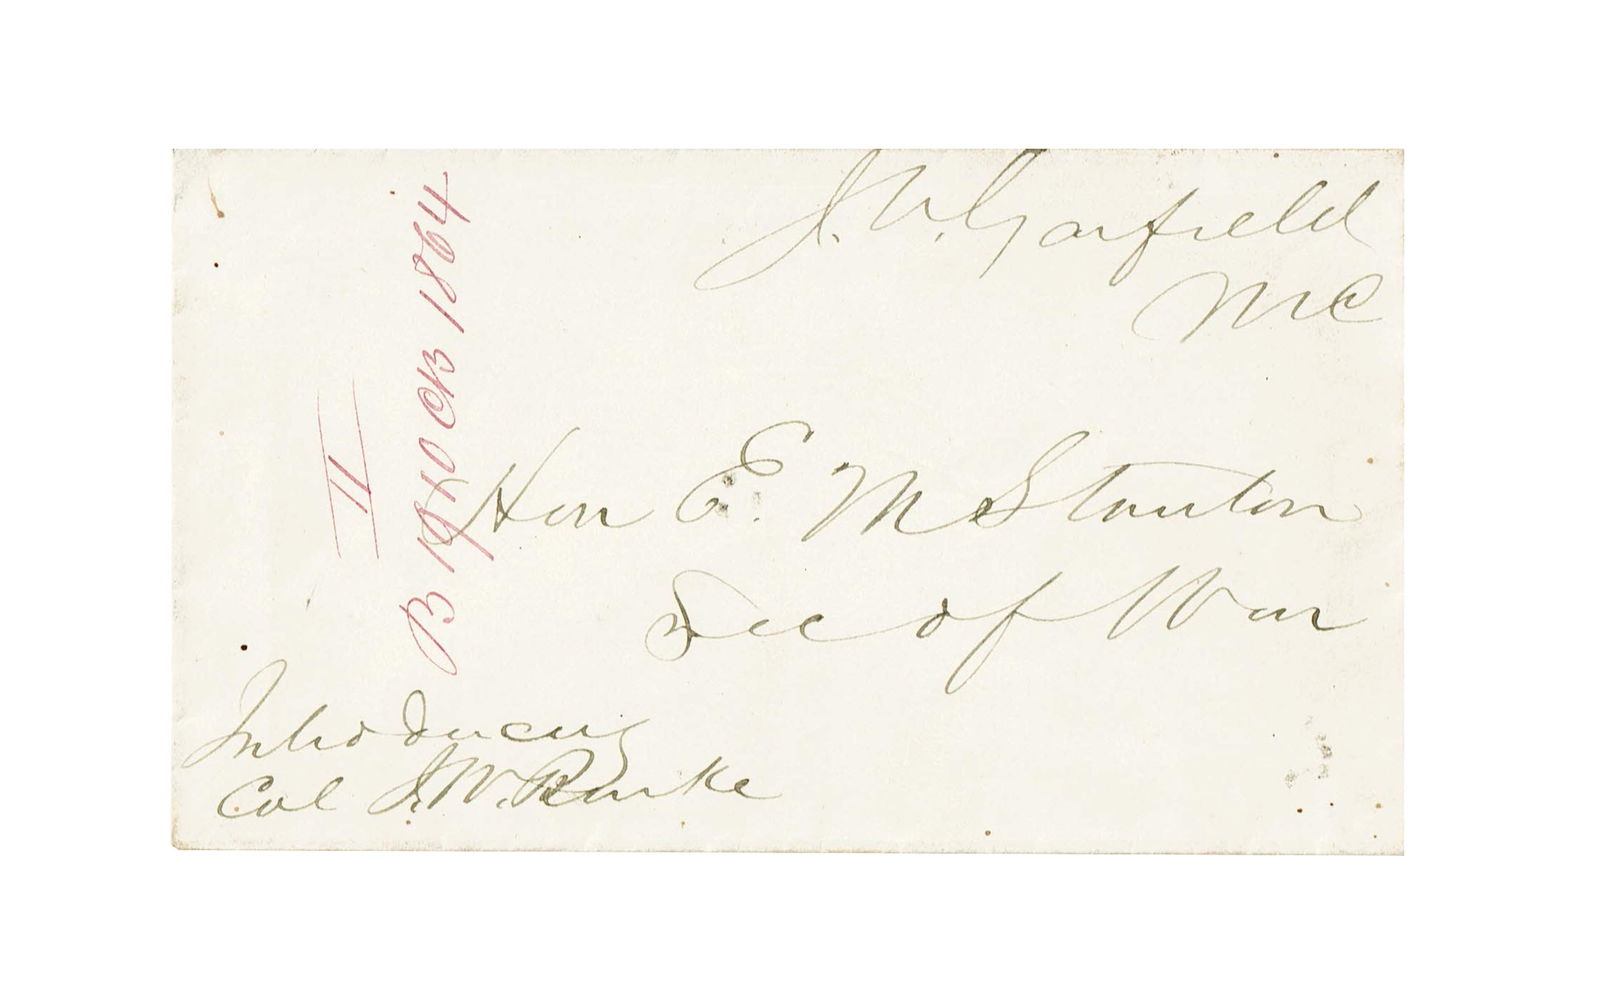 J. A. Garfield
MC
Hon E. M Stanton
Sec of War
Introducing
Col J. W. Burke
II
B 1910 CB 1864